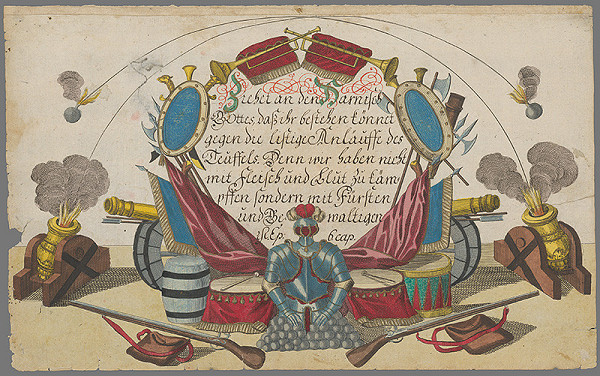 Ziehet an den Harnisch
Gottes, daß ihr bestehen könnet
gegen die listige Anläuffe des
Teuffels. Denn wir haben nicht
mit Fleisch und Blut zu käm
pffen sondern mit Fürsten
und Ge waltigen
Ep. 6 cap.